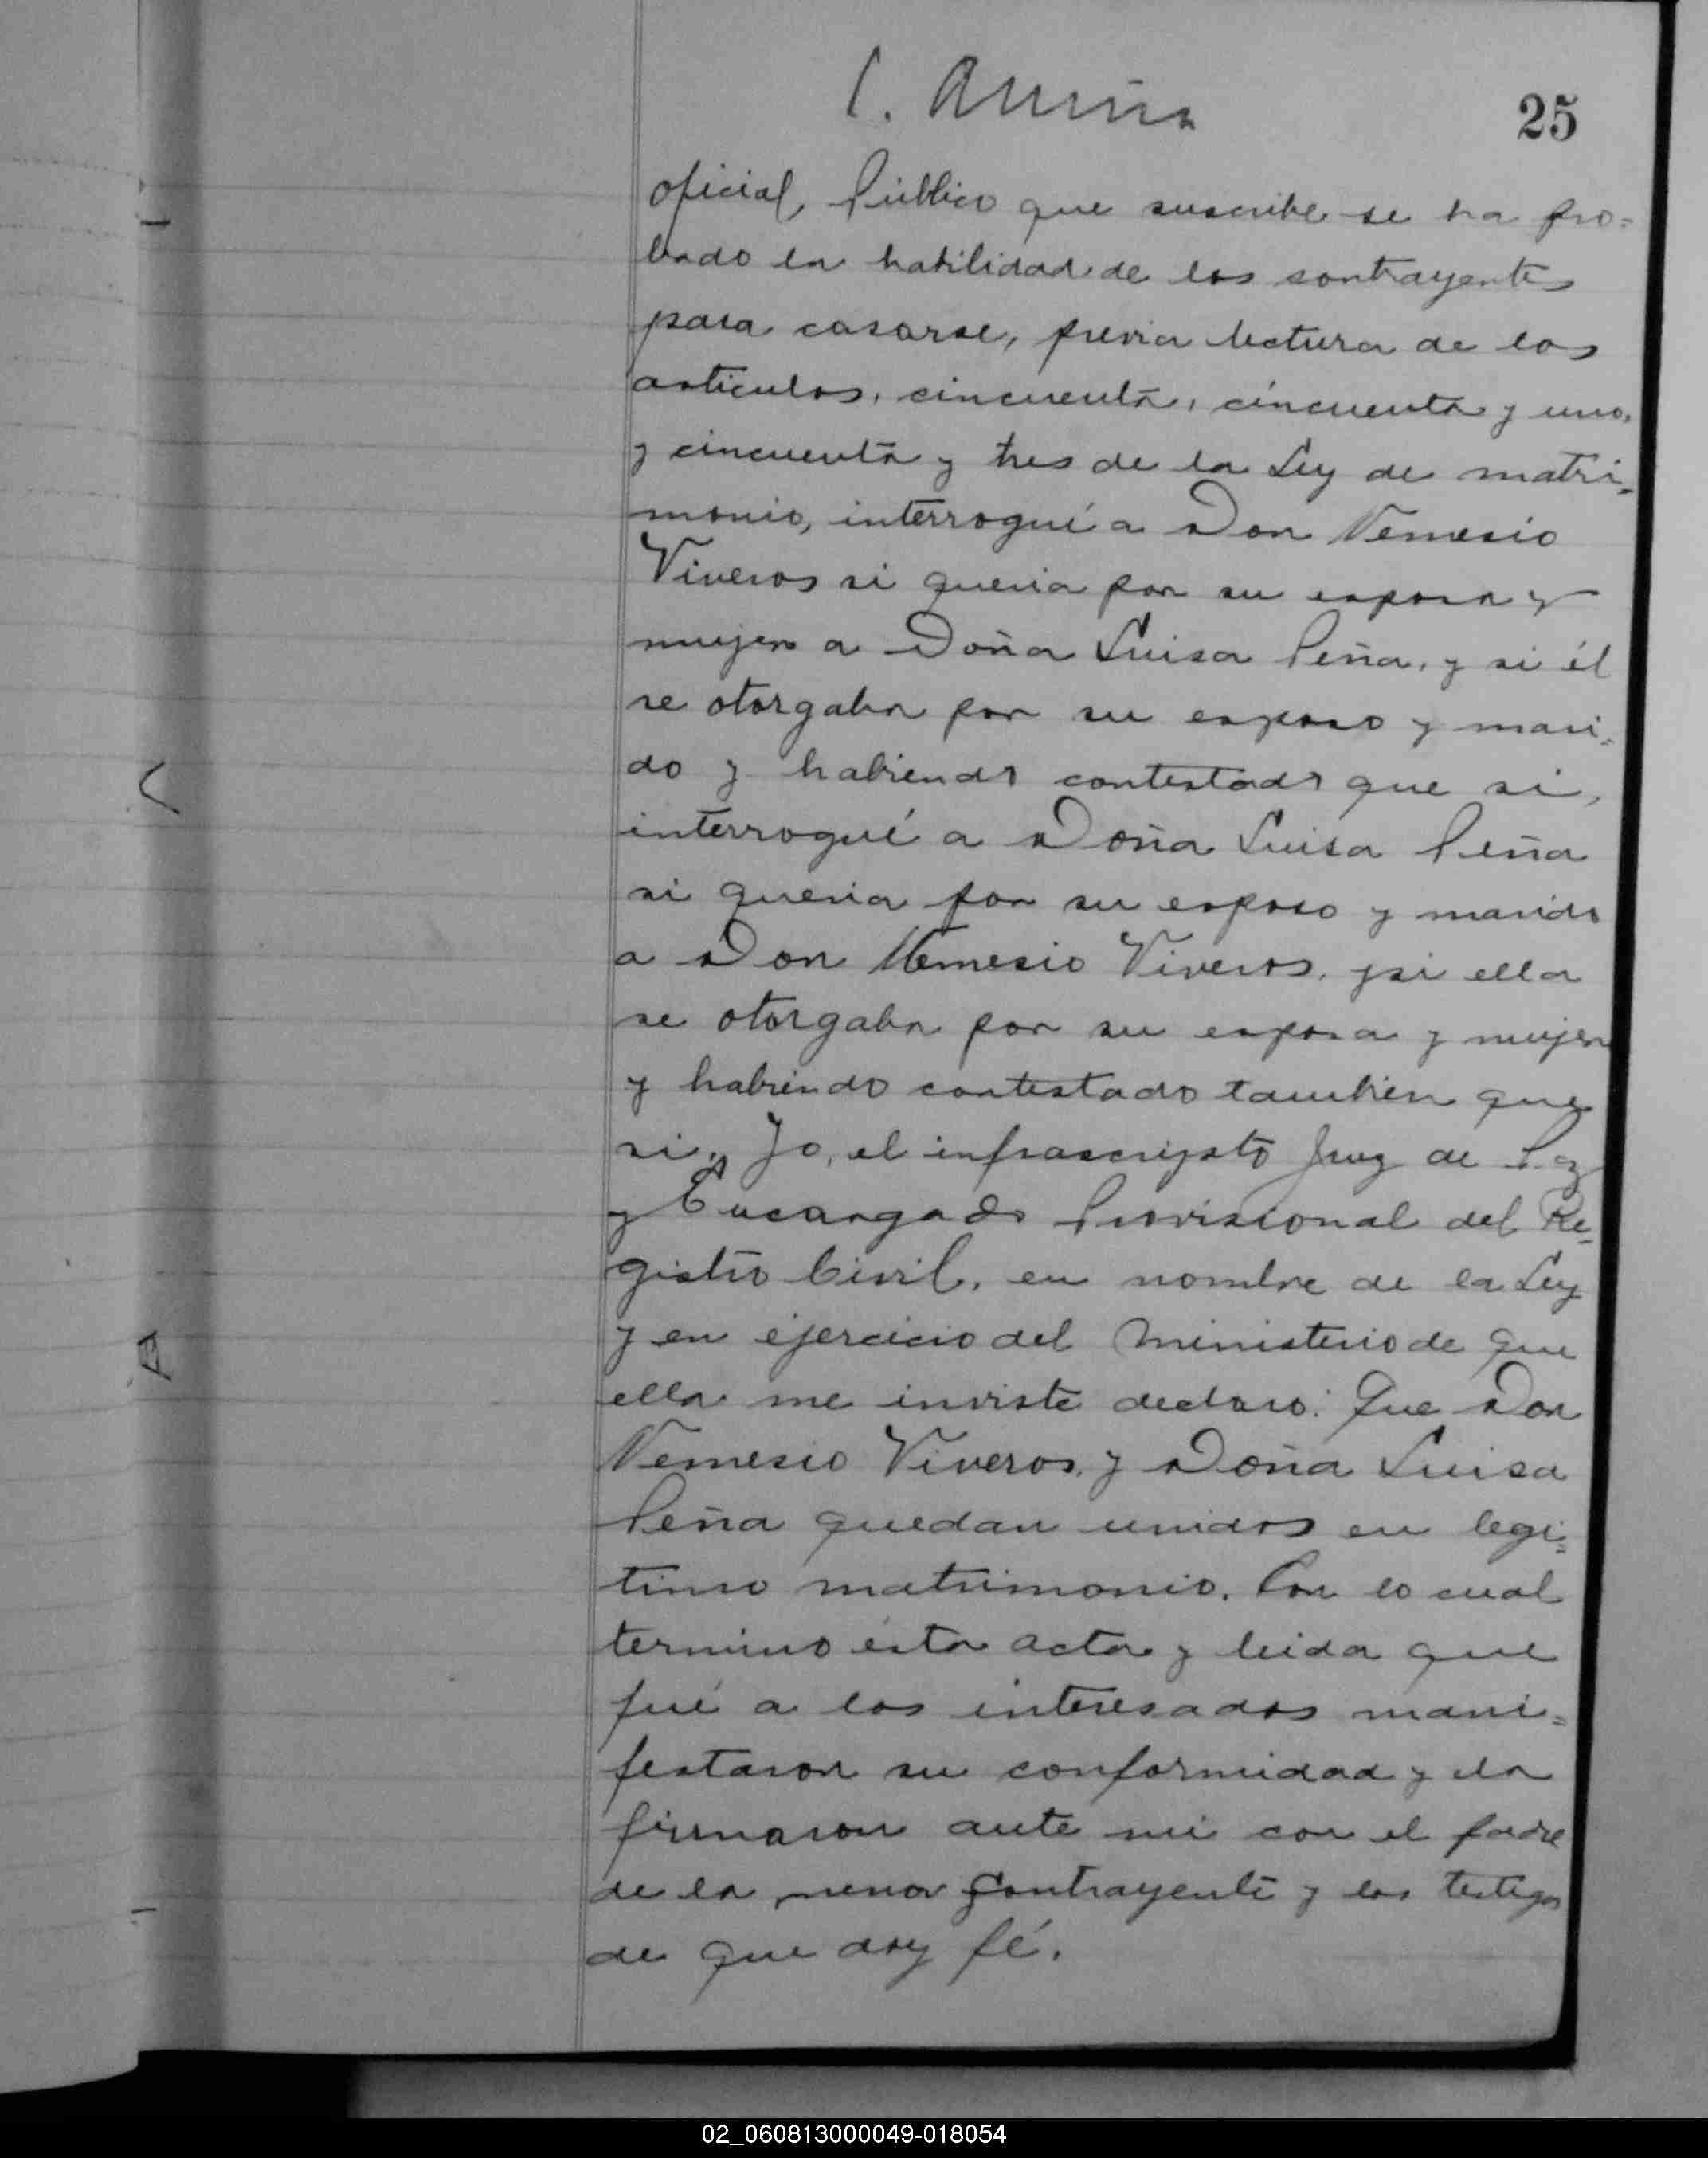 25
oficial Público que suscribe se ha pro=
bado la habilidad de los contrayentes
para casarse, previa lectura de los
articulos, cincuenta, cincuenta y uno,
y cincuenta y tres de la Ley de matri=
monio, interrogué a Don Nemesio
Viveros si queria por su esposa y
mujer a Doña Luisa Peña, y si él
se otorgaba por su esposo y mari=
do y habiendo contestado que si,
interrogué a Doña Luisa Peña
si queria por su esposo y marido
a Don Nemesio Viveros, y si ella
se otorgaba por su esposa y mujer
y habiendo contestado tambien que
si, Yo, el infrascripto Juez de Paz
y Encargado Provisional del Re=
gistro Civil, en nombre de la Ley
y en ejercicio del Ministerio de que
ella me inviste declaro: Que Don
Nemesio Viveros, y Doña Luisa
Peña quedan unidos en legi=
timo matrimonio. Con lo cual
termino ésta acta y leida que
fué a los interesados mani=
festaron su conformidad y la
firmaron ante mi con el padre
de la menor contrayente y los testigos
de que doy fé.
02_060813000049-018054